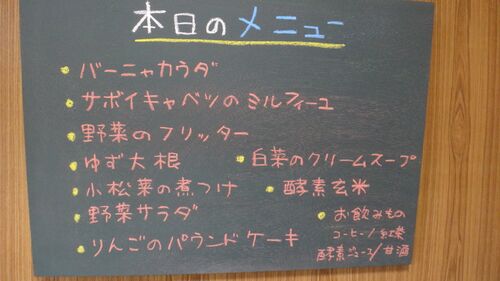 本日のメニュー
・バーニャカウダ
・サボイキャベツのミルフィーユ
・野菜のフリッター
・ゆず大根
・白菜のクリームスープ
・小松菜の煮つけ
・酵素玄米
・野菜サラダ
・お飲みもの
コーヒー/紅茶
酵素ジュース/甘酒
・りんごのパウンドケーキ